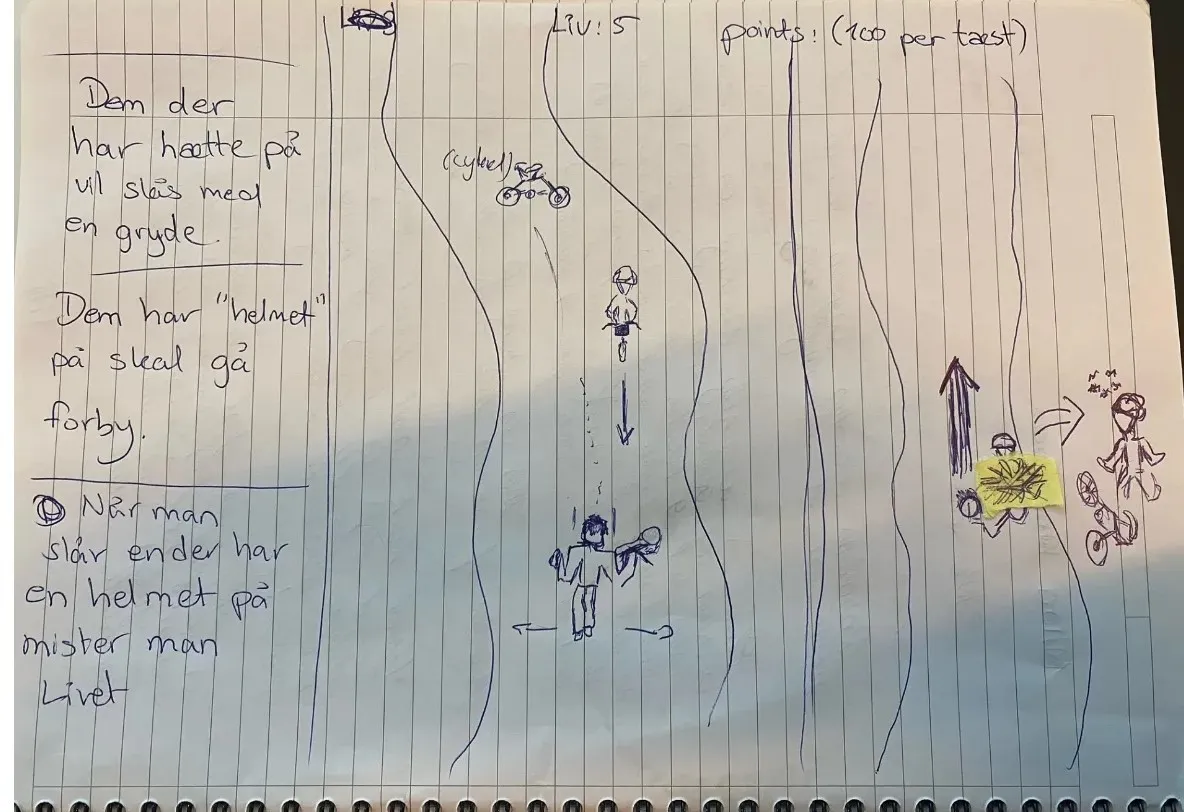 Liv: 5
points: (100 per tæst)
Dem der
har hætte på
vil slås med
en gryde.
Dem har "helmet"
på skal gå
forby.
Når man
slår en der har
en helmet på
mister man
Livet
(cykel)